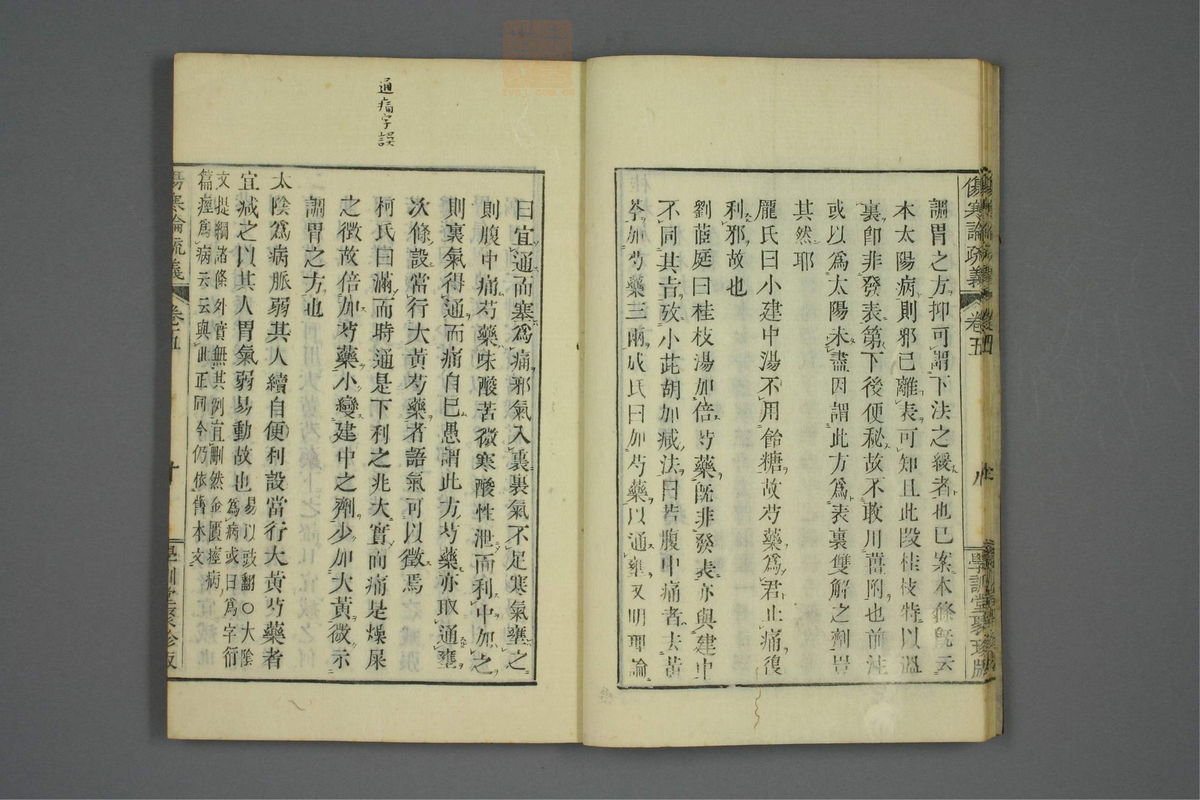 傷寒論疏義
卷五
學訓堂聚珍版
謂胃之方抑可謂下法之緩者也已案本條既云
本太陽病則邪已離表可知且此段桂枝特以溫
裏卽非發表第下後便秘故不敢用薑附也前注
或以爲太陽未盡因謂此方爲表裏雙解之劑豈
其然耶
龐氏曰小建中湯不用飴糖故芍藥爲君止痛復
利邪故也
劉蓝庭曰桂枝湯加倍芍藥旣非發表亦與建中
不同其旨攷小茈胡加減法曰若腹中痛者去黃
芩加芍藥三兩成氏曰加芍藥以通壅又明理論
曰宜通而塞爲痛邪氣入裏裏氣不足寒氣壅之
則腹中痛芍藥味酸苦微寒酸性泄而利中加之
則裏氣得通而痛自已愚謂此方芍藥亦取通壅
次條設當行大黃芍藥者語氣可以徵焉
柯氏曰滿而時通是下利之兆大實而痛是燥屎
之徵故倍加芍藥小變建中之劑少加大黃微示
調胃之方也
太陰爲病脈弱其人續自便利設當行大黃芍藥者
宜減之以其人胃氣弱易動故也易以豉翻○大陰
爲病或曰爲字衍
文提綱諸條外實無其例宜刪然金匱痙病
篇痙爲病云云與此正同今仍依舊本文
傷寒論疏義
卷五
十
學訓堂聚珍版
通痛字誤